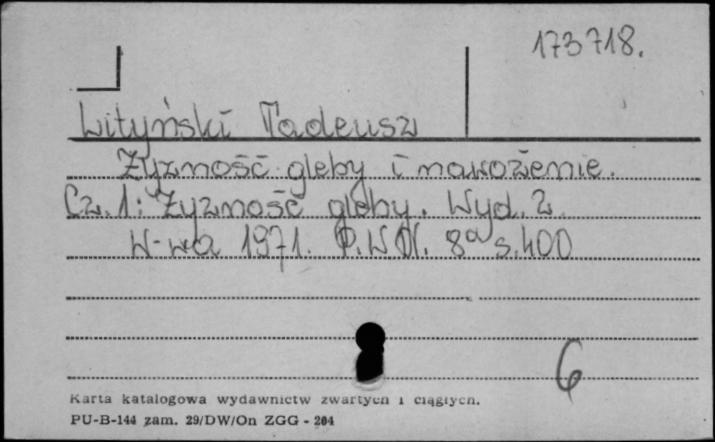 173718.
Lityński Tadeusz
Żyzność gleby i nawożenie.
Cz. 1: Żyzność gleby. Wyd. 2.
W-wa 1971. P.W.N. 8° s. 400
6
Karta katalogowa wydawnictw zwartych i ciągłych.
PU-B-144 zam. 29/DW/On ZGG - 204